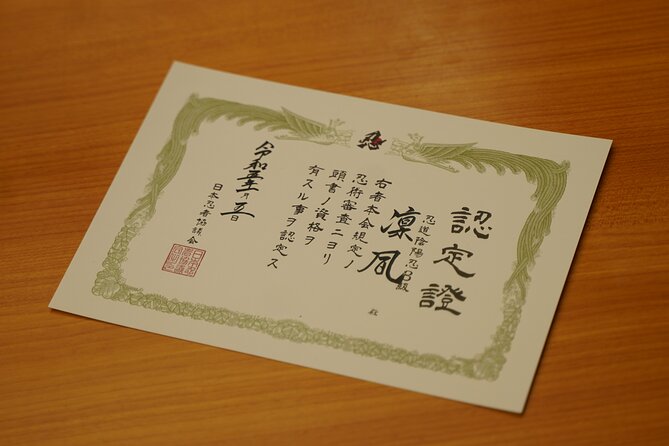 認定證
忍道陰陽忍B級
凜風
殿
右者本会規定ノ
忍術審査ニヨリ
頭書ノ資格ヲ
有スル事ヲ認定ス
令和五年 月 五日
日本忍者協議会